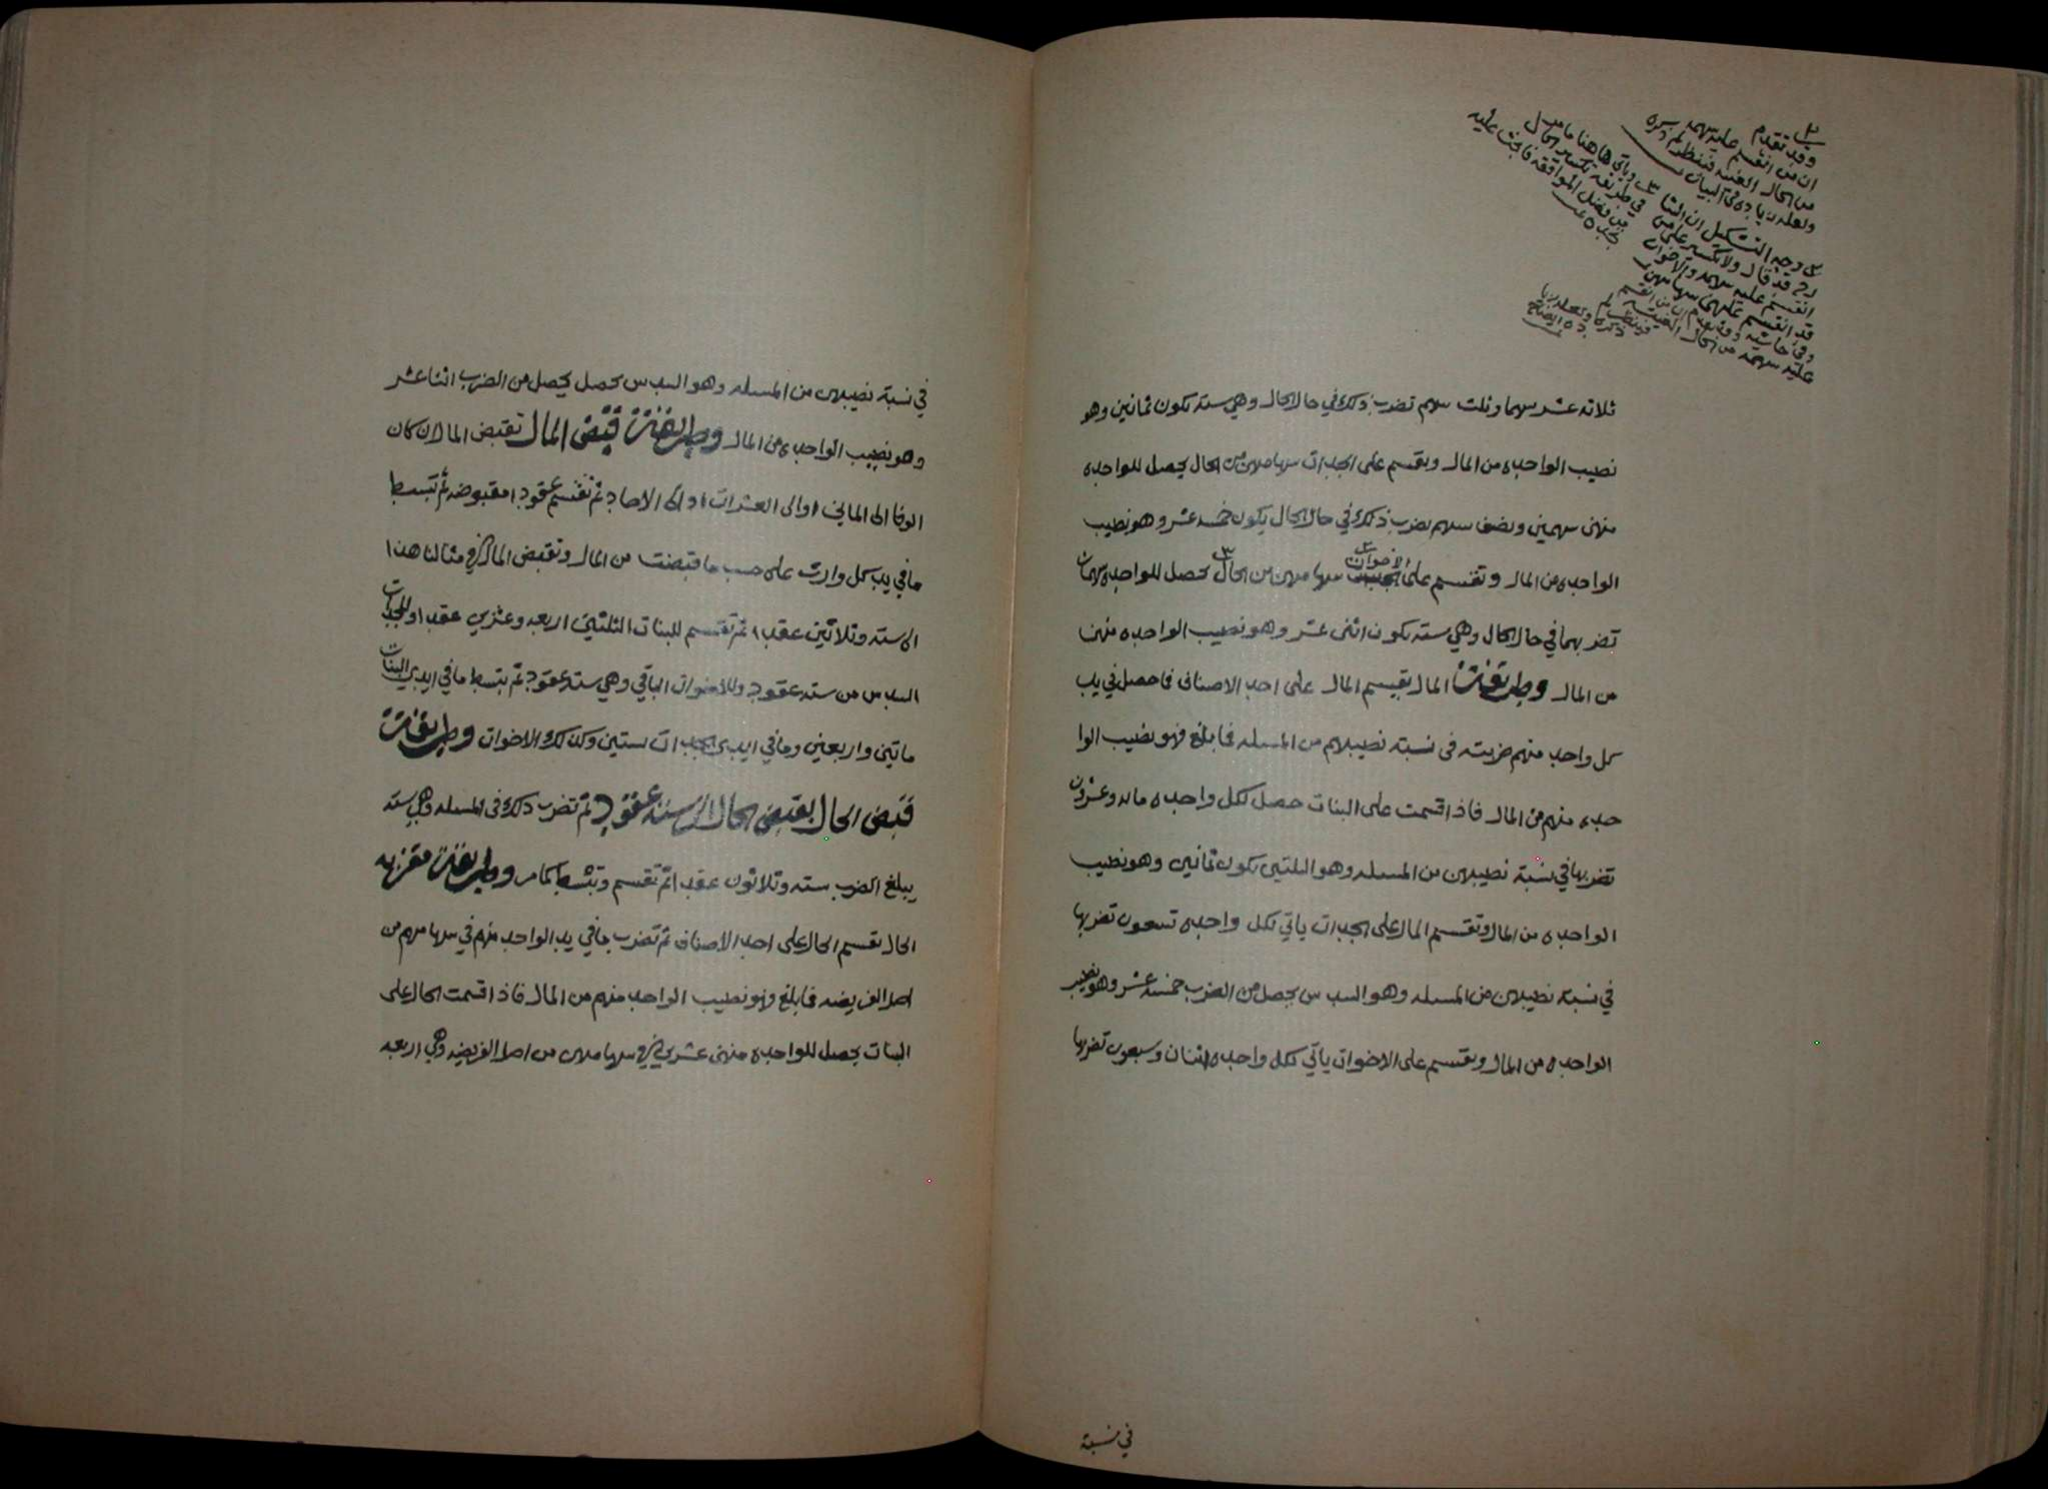 وقد تقدم
ان من انقسم عليه سهمه
من الحال الغنيه فينظر لم ذكره
ولعله زياده في البيان
وجه التشكيل ان الثا وياتي هاهنا ما مر
قد قال ولا تكسير على من في طريقة تكسير الحال
انقسم عليه سهمه والاخوات من فضل الموافقه فابحث عليه
قد انقسم عليهن سهامهن تجده
وفي حاشيه وقد تقدم ان من انقسم
عليه سهمه من الحال
ثلاثه عشر سهما وثلث سهم تضرب ذلك في حال الحال وهي سته تكون ثمانين وهو
نصيب الواحده من المال وتقسم على الجدات سهامهن من الحال يحصل للواحده
منهن سهمين ونصف سهم تضرب ذلك في حال الحال يكون خمسه عشر وهو نصيب
الواحده من المال وتقسم على الاخوات سهامهن من الحال يحصل للواحده سهمان
تضربهما في حال الحال وهي سته يكون اثنى عشر وهو نصيب الواحده منهن
من المال وطريقة المال تقسم المال على احد الاصناف فما حصل في يد
كل واحد منهم ضربته في نسبة نصيبهم من المسله فما بلغ فهو نصيب الوا
حده منهم من المال فاذا قسمت على البنات حصل لكل واحده مايه وعشرون
تضربها في نسبة نصيبهن من المسله وهو الثلثين يكون ثمانين وهو نصيب
الواحده من المال وتقسم المال على الجدات ياتي لكل واحده تسعون تضربها
في نسبة نصيبهن من المسله وهو السدس يحصل من الضرب خمسه عشر وهو نصيب
الواحده من المال وتقسم على الاخوات ياتي لكل واحده اثنان وسبعون تضربها
في نسبة
في نسبة نصيبهن من المسله وهو السدس يحصل يحصل من الضرب اثنا عشر
وهو نصيب الواحده من المال وطريقة قبض المال تقبض المال ان كان
الوفا الى الماين او الى العشرات او الى الاحاد ثم تقسم عقودا مقبوضه ثم تبسط
ما في يد كل وارث على حسب ما قبضت من المال وتقبض المال في مثالنا هذا
الا سته وثلاثين عقدا ثم تقسم للبنات الثلثين اربعه وعشرين عقدا وللجدات
السدس من سته عقود وللاخوات الباقي وهي سته عقود ثم تبسط ما في ايدي البنات
ماتين واربعين وما في ايدي الجدات ستين وكذلك الاخوات وطريقة
قبض الحال تقبض الحال الى سته عقود ثم تضرب ذلك في المسله وهي سته
يبلغ الضرب سته وثلاثون عقدا ثم تقسم وتبسط كما مر وطريقة معرفة
الحال تقسم الحال على احد الاصناف ثم تضرب ما في يد الواحد منهم في سهامهم من
اصل الفريضه فما بلغ فهو نصيب الواحد منهم من المال فاذا قسمت الحال على
البنات يحصل للواحده منهن عشرين في سهامهن من اصل الفريضه وهي اربعه